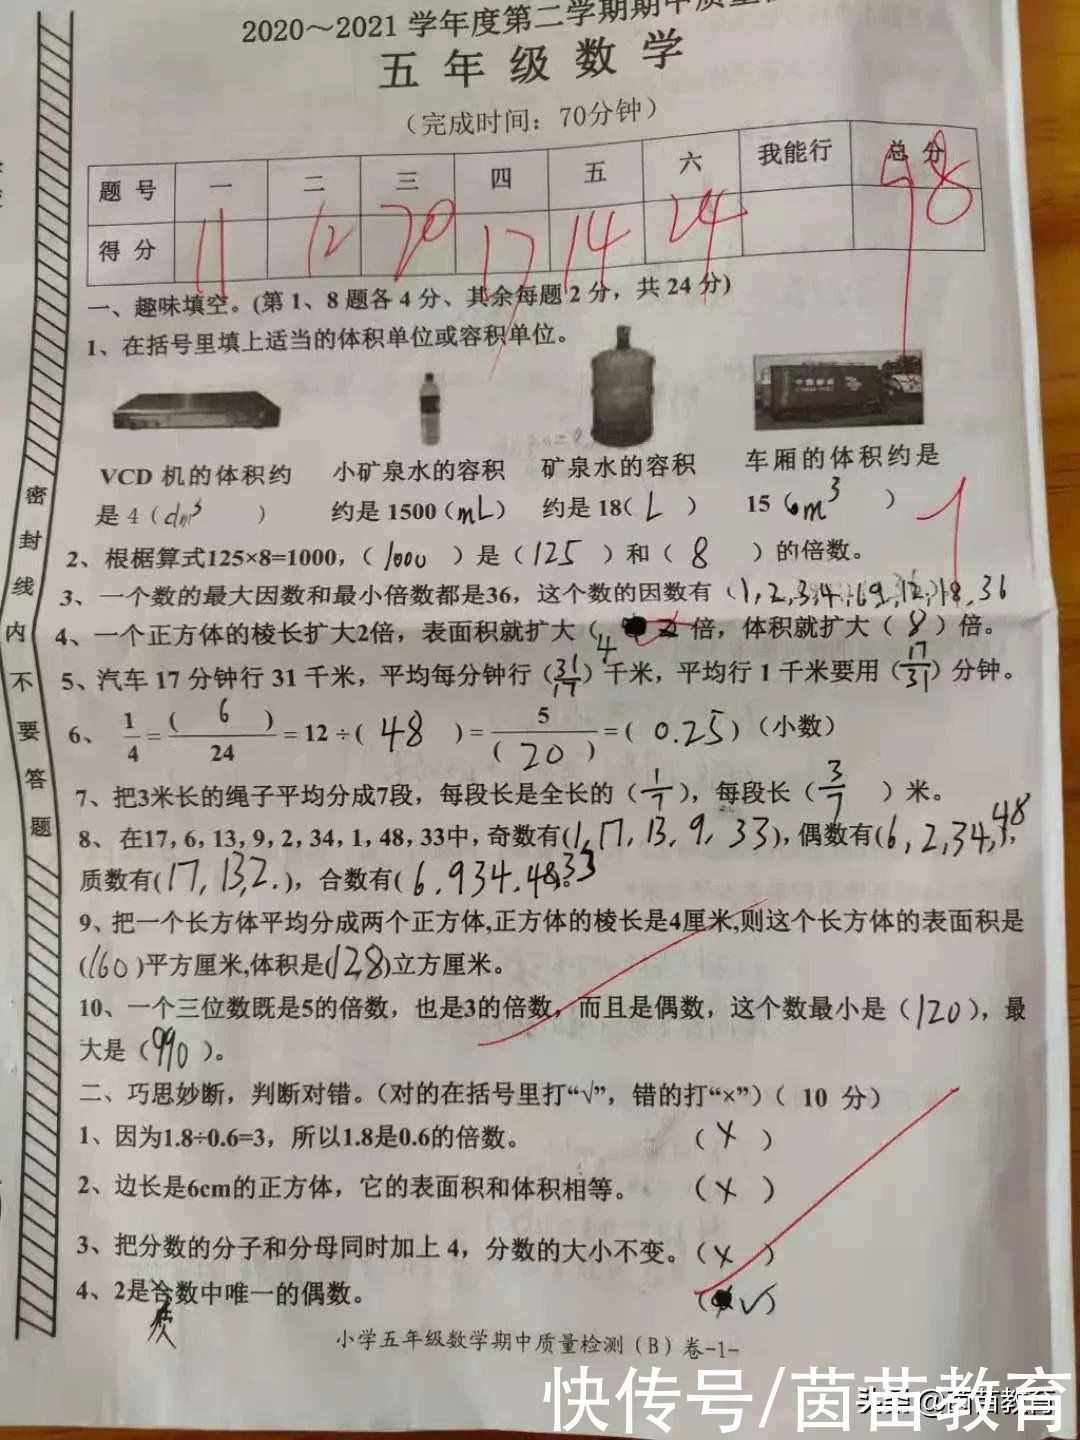 2020～2021 学年度第二学期期中质量
五年级数学
（完成时间：70分钟）
题号 一 二 三 四 五 六 我能行 总分
得分 11 12 20 17 14 24 98
一、趣味填空。(第 1、8 题各 4 分、其余每题 2 分，共 24 分)
1、在括号里填上适当的体积单位或容积单位。
VCD 机的体积约 小矿泉水的容积 矿泉水的容积 车厢的体积约是
是 4（dm³ ） 约是 1500（mL） 约是 18( L ） 15（m³ ）
2、根椐算式125×8=1000，（ 1000 ）是（ 125 ）和（ 8 ）的倍数。
3、一个数的最大因数和最小倍数都是36，这个数的因数有（1, 2, 3, 4, 6, 9, 12, 18, 36
4、一个正方体的棱长扩大2倍，表面积就扩大（ 4 倍，体积就扩大（ 8 ）倍。
5、汽车 17 分钟行 31 千米，平均每分钟行（31/17）千米，平均行 1 千米要用（17/31）分钟。
6、 1/4 = ( 6 )/24 = 12 ÷( 48 ) = 5/( 20 ) =( 0.25 )（小数）
7、把3米长的绳子平均分成7段，每段长是全长的（1/7），每段长（3/7 ）米。
8、在17, 6, 13, 9, 2, 34, 1, 48, 33中, 奇数有(1, 17, 13, 9, 33), 偶数有(6, 2, 34, 48),
质数有(17, 13, 2. )，合数有( 6. 9 34. 48. 33
9、把一个长方体平均分成两个正方体,正方体的棱长是4厘米,则这个长方体的表面积是
(160 )平方厘米,体积是(128)立方厘米。
10、一个三位数既是5的倍数，也是3的倍数，而且是偶数，这个数最小是（120），最
大是（990 ）。
二、巧思妙断，判断对错。（对的在括号里打“√”，错的打“×”）（ 10 分）
1、因为1.8÷0.6=3，所以1.8是0.6的倍数。 （ × ）
2、边长是6cm的正方体，它的表面积和体积相等。 （ × ）
3、把分数的分子和分母同时加上 4，分数的大小不变。（ × ）
4、2是合数中唯一的偶数。 （ √）
质
小学五年级数学期中质量检测（B）卷-1-
密封线内不要答题
快传号/茵苗教育
头条 @茵苗教育